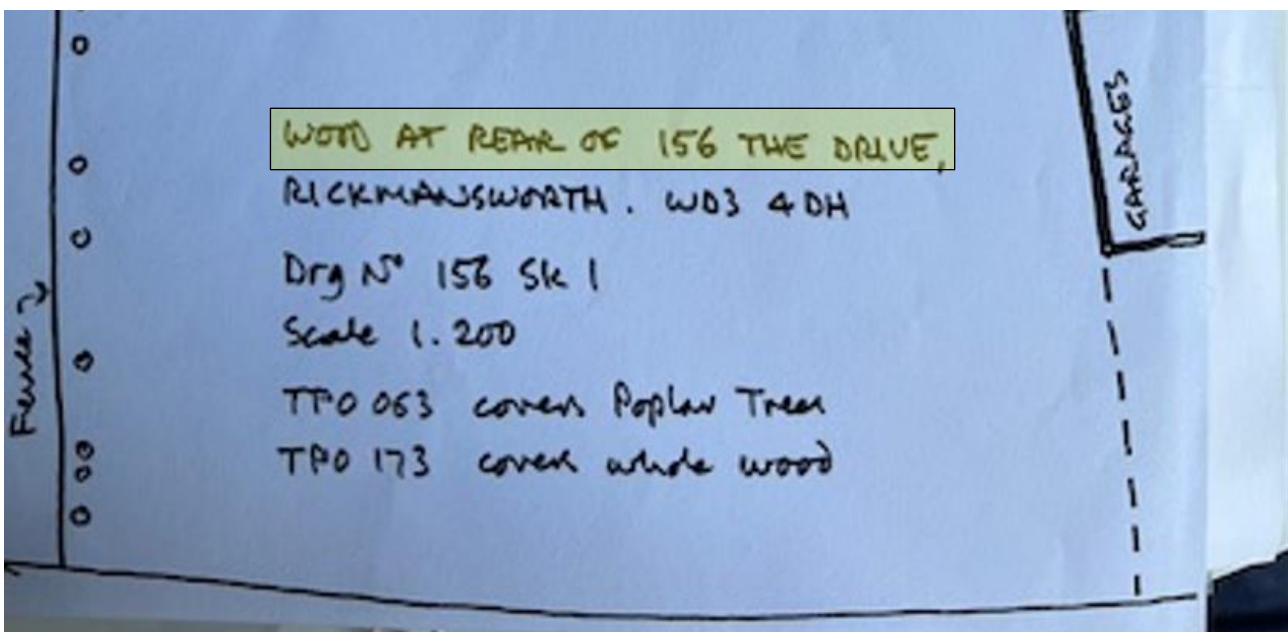 WOOD AT REAR OF 156 THE DRIVE,
RICKMANSWORTH. WD3 4DH
Drg No 156 Sk 1
Scale 1.200
TPO 063 covers Poplar Trees
TPO 173 covers whole wood
Fence
GARAGES